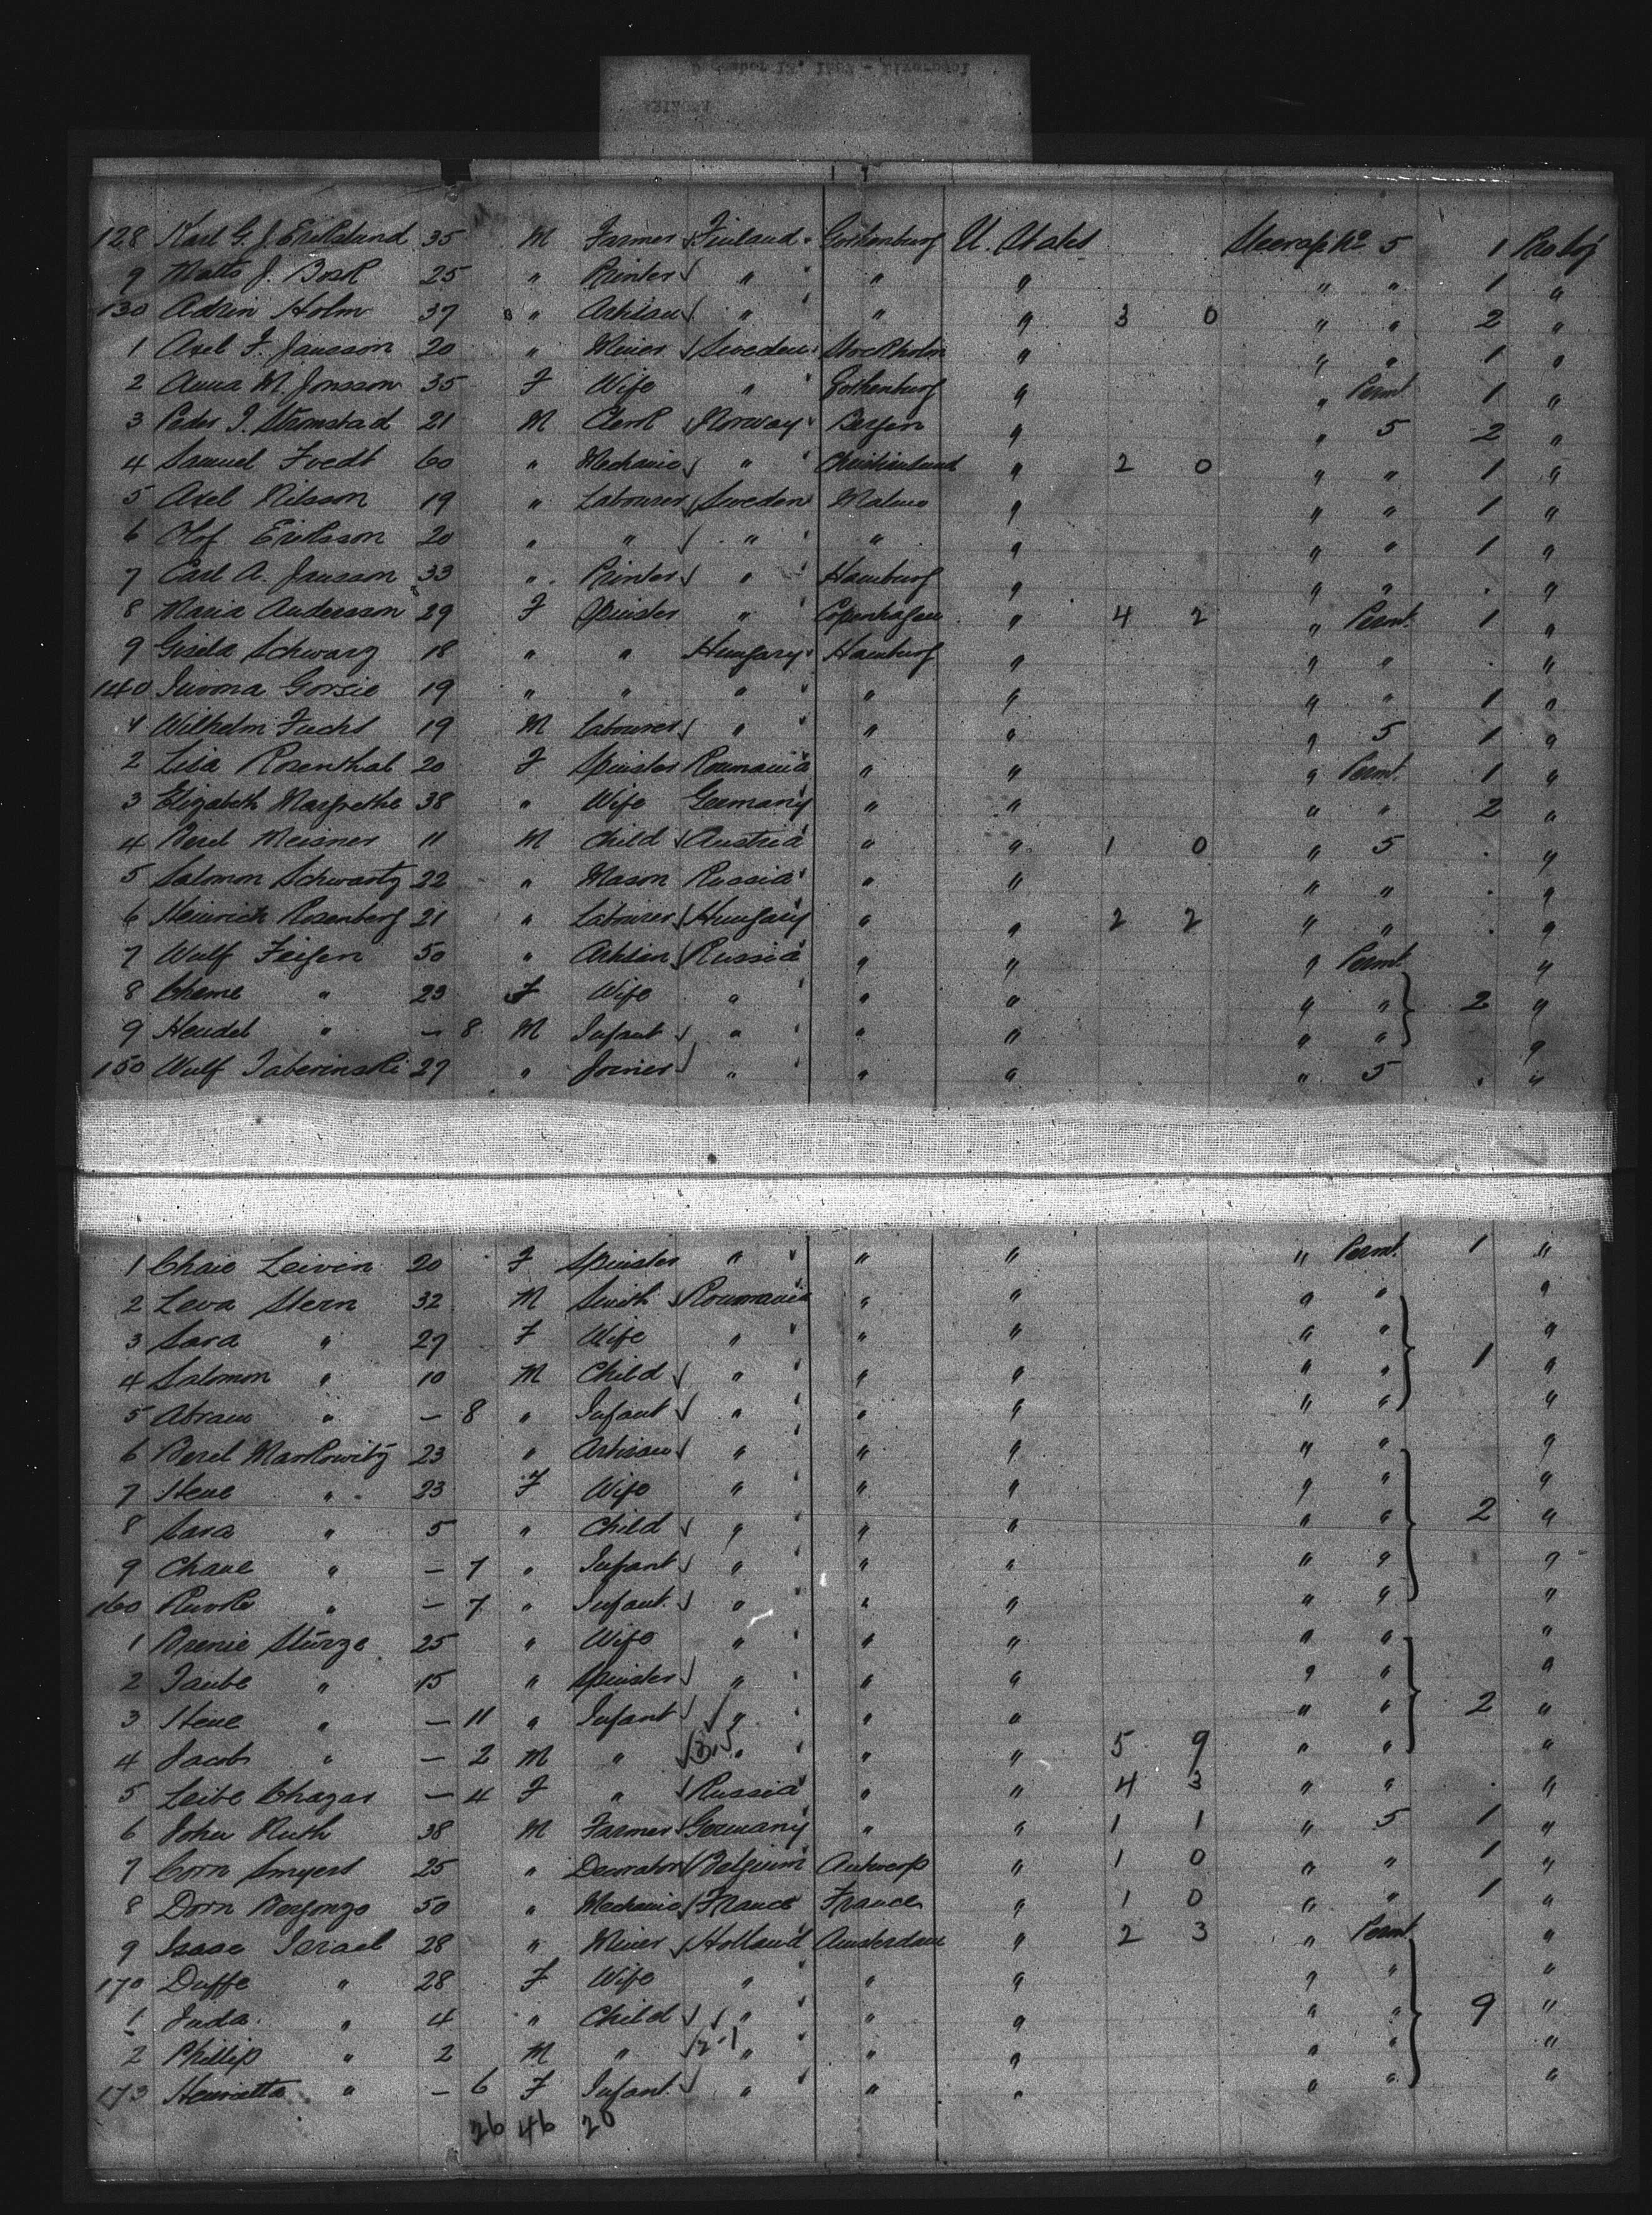 128 Karl G. J. Erikslund 35 M Farmer Finland Gothenburg U. States Steerage No 5 1
9 Matts J. Bosk 25 " Printer " " " " " 1 "
130 Holm 37 " Artisan " " " 3 0 " " 2 "
1 Axel F. Jansson 20 " Miner Sweden Stockholm " " " 1 "
2 Anna M. Jonsson 35 F Wife " Gothenburg " " Permt. 1 "
3 Peder J. Stromstad 21 M Clerk Norway Bergen " " 5 2 "
4 Samuel Tvedt 60 " Mechanic " Christiansand " 2 0 " " 1 "
5 Axel Nilsson 19 " Labourer Sweden Malmo " " " 1 "
6 Olof Eriksson 20 " " " " " " " 1 "
7 Carl A. Jansson 33 " Printer " Hamburg " " " . "
8 Maria Andersson 29 F Spinster " Copenhagen " 4 2 " Permt. 1 "
9 Gisela Schwarz 18 " " Hungary Hamburg " " " . "
140 19 " " " " " " " 1 "
1 Wilhelm Fuchs 19 M Labourer " " " " 5 1 "
2 Lisa Rosenthal 20 F Spinster Roumania " " " Permt. 1 "
3 Elizabeth Margrethe 38 " Wife Germany " " " " 2 "
4 Berel Meisner 11 M Child Austria " " 1 0 " 5 . "
5 Salomon Schwartz 22 " Mason Russia " " " " . "
6 Heinrich Rosenberg 21 " Labourer Hungary " " 2 2 " " . "
7 Wulf Feigen 50 " Artisan Russia " " " Permt. "
8 Cheme " 23 F Wife " " " " " 2 "
9 Hendel " — 8 M Infant " " " " " "
150 Wulf Taberinski 27 " Joiner " " " " 5 . "
1 Chaie Leivin 20 F Spinster " " " " Permt. 1 "
2 Leva Stern 32 M Smith Roumania " " " " "
3 Sara " 27 F Wife " " " " " "
4 Salomon " 10 M Child " " " " " 1 "
5 Abram " — 8 " Infant " " " " " "
6 Berel Markowitz 23 " Artisan " " " " " "
7 Hene " 23 F Wife " " " " " "
8 Sara " 5 " Child " " " " " 2 "
9 Chane " — 7 " Infant " " " " " "
160 " — 7 " Infant " " " " " "
1 Sturze 25 " Wife " " " " " "
2 Taube " 15 " Spinster " " " " " "
3 Hene " — 11 " Infant " " " " " 2 "
4 Jacob " — 2 M " " " " 5 9 " " "
5 Leibe Chazas — 4 F " Russia " " 4 3 " " . "
6 John Ruth 38 M Farmer Germany " " 1 1 " 5 1 "
7 Corn Smyers 25 " Decorator Belgium Antwerp " 1 0 " " 1 "
8 Dorn 50 " Mechanic France France " 1 0 " " 1 "
9 Isaac Israel 28 " Miner Holland Amsterdam " 2 3 " Permt. "
170 Duffe " 28 F Wife " " " " " "
1 Juda " 4 " Child " " " " " 9 "
2 Phillip " 2 M " " " " " " "
173 Henrietta " — 6 F Infant " " " " " "
26 46 20